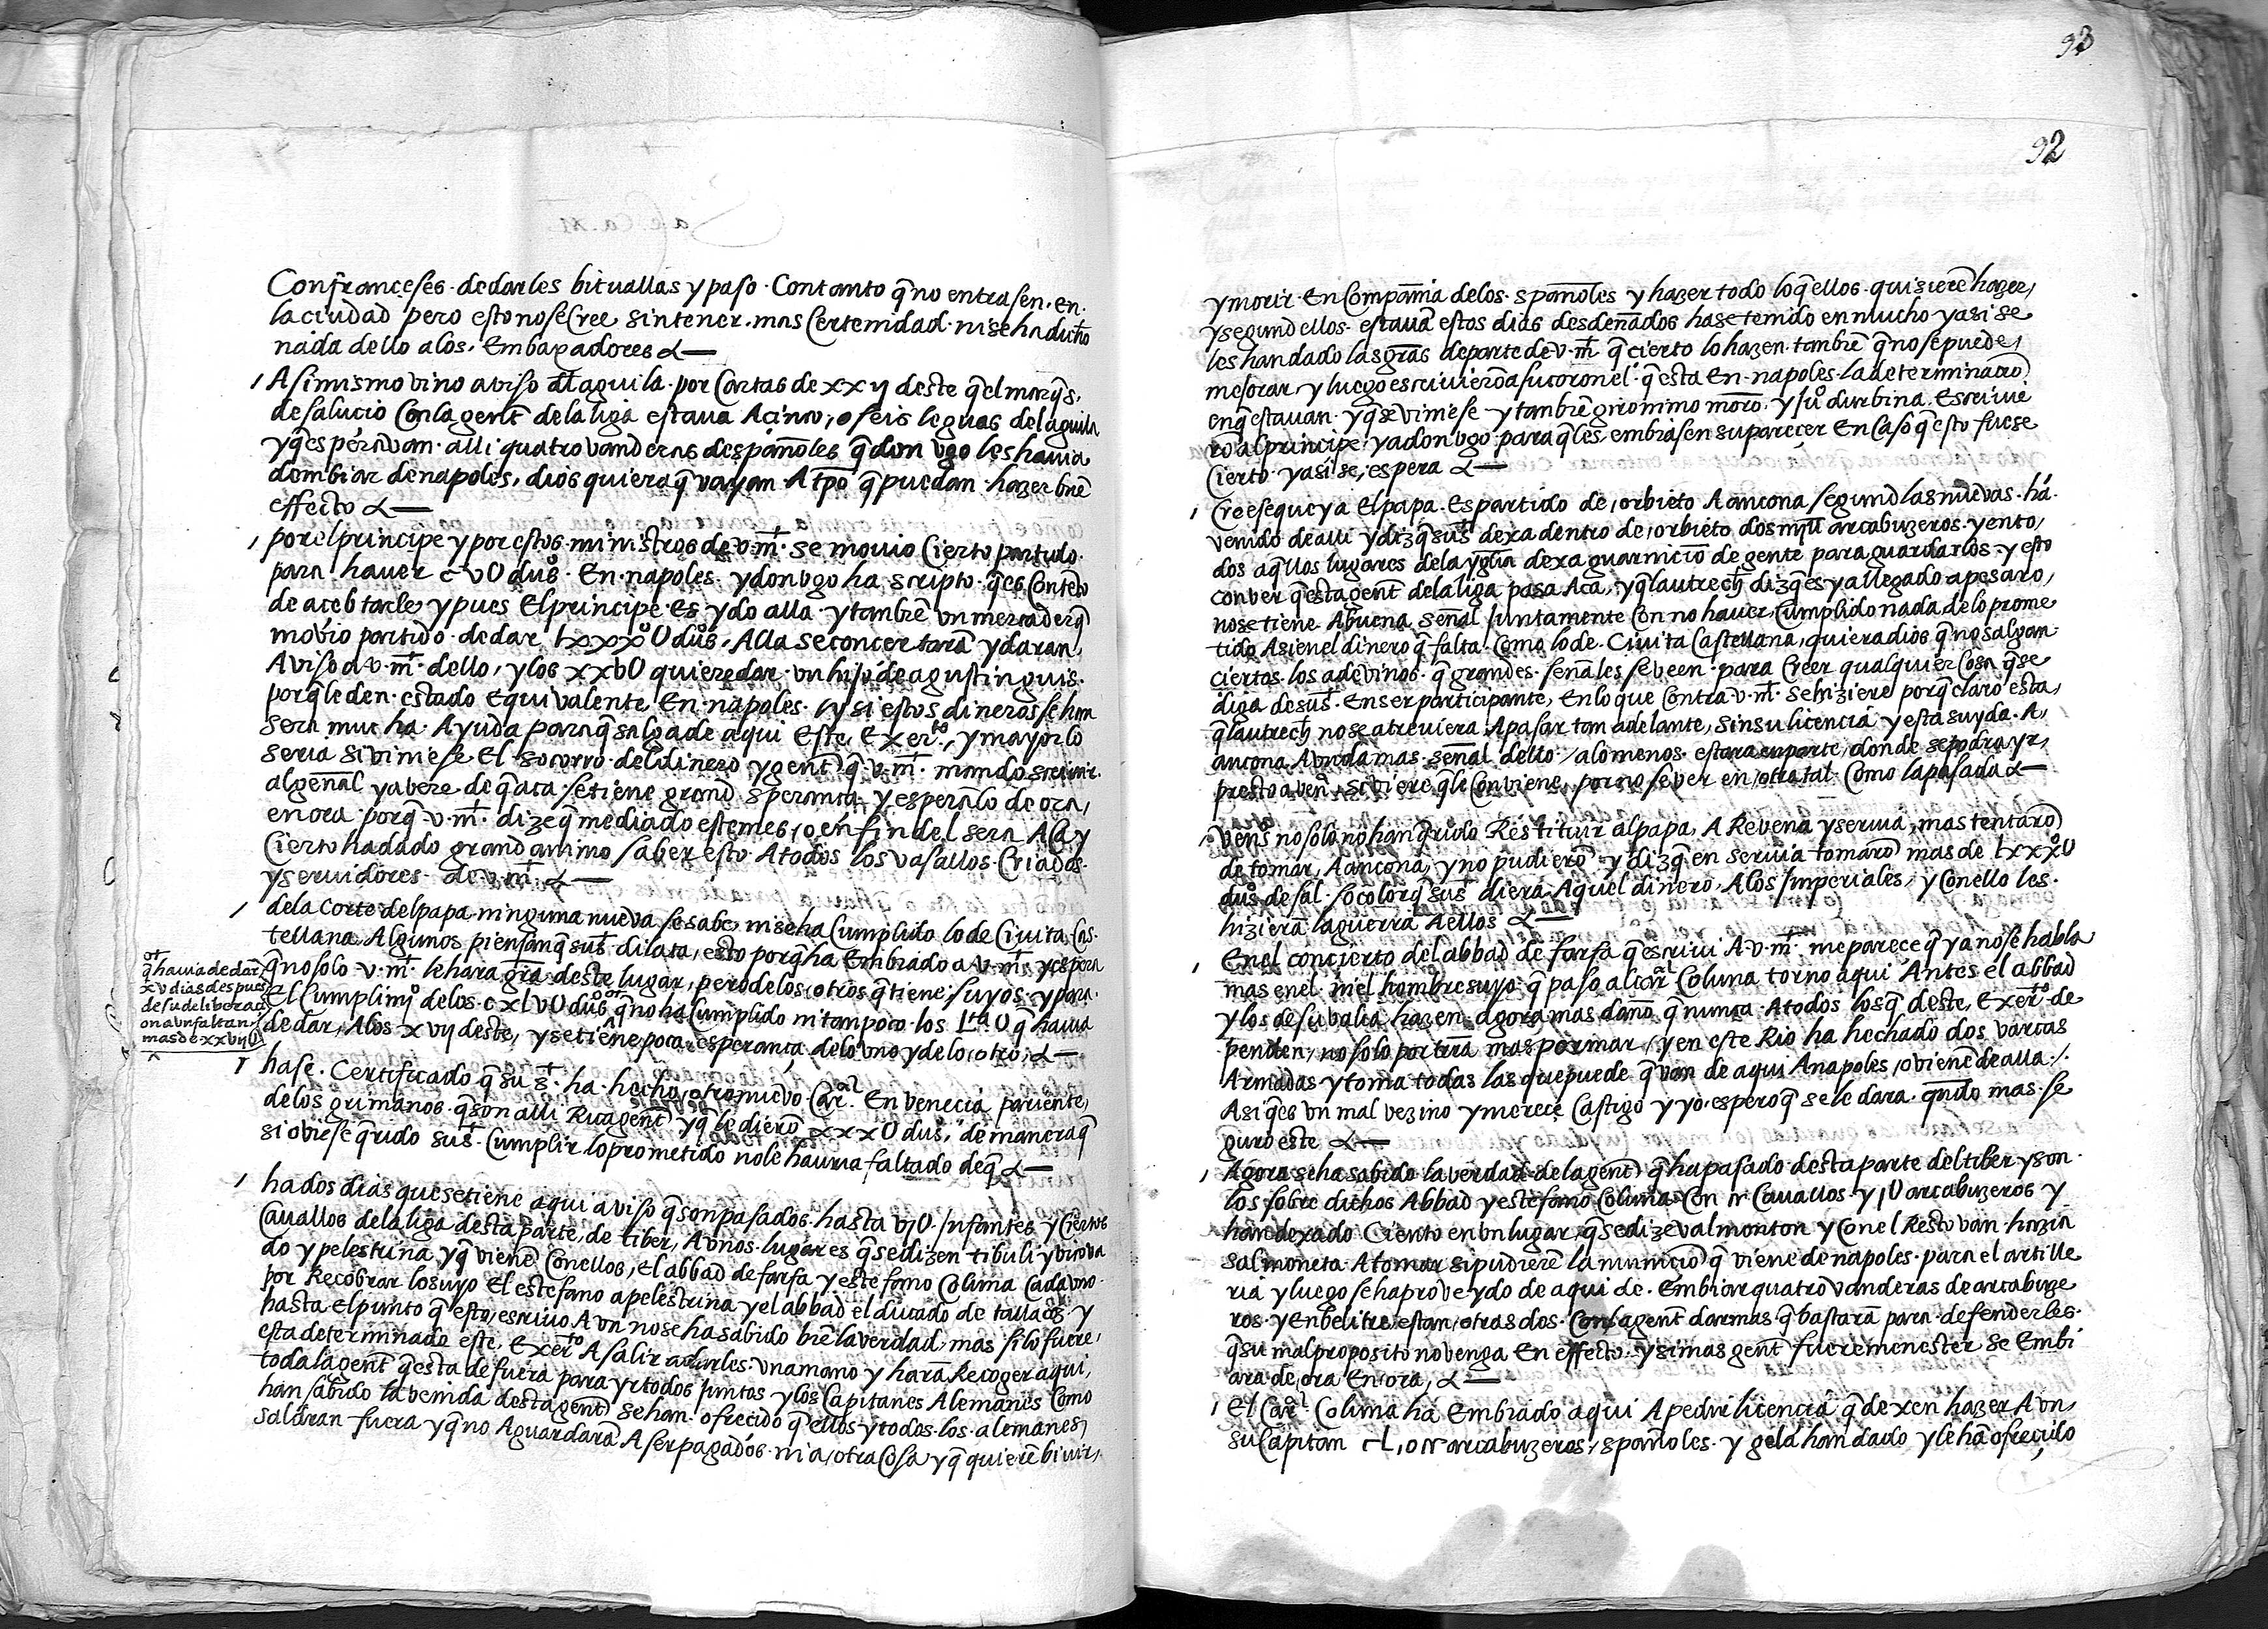 Confrançeses dedarles bituallas y paso Contanto q̃ no entrasen en
la ciudad pero esto nose Cree sintener mas Certenidad niseha dicho
nada dello alos Embaxadores &—
/ Asimismo vino aviso dl aguila por Cartas de xxij deste q̃ el marq̃s
de salucio Con la gent̃ dela liga estava A cinco o seis leguas del aguila
y q̃ esperavan alli quatro vanderas despañoles q̃ don ugo les havia
dembiar de napoles, dios quiera q̃ vayan A tp̃o q̃ puedan hazer buẽ
effecto &—
/ por el principe y por estos ministros de v. mt. se movio Cierto partido
para haver c v U dus. En napoles y don ugo ha scripto q̃ es Contẽto
de aceptarle y pues El principe es ydo alla y tambiẽ un mercader q̃
movio partido de dar lxxxU dus. Alla se concertarã y daran
Aviso a v. mt. dello, y los xxvU quiere dar un hijo de agustin guis
porq̃ le den estado Equivalente En napoles y si estos dineros se han
sera mucha Ayuda para q̃ salga de aqui Este Exerto, y mayor lo
seria si viniese El socorro del dinero y gent̃ q̃ v. mt. mando screvir
al geñal y a vere de q̃ aca se tiene grand sperança y esperãlo de ora
en ora porq̃ v. mt. dize q̃ mediado este mes o en fin del sera Aca y
Cierto ha dado grand animo saber esto A todos los vasallos Criados
y servidores de v. mt. &—
/ dela Corte del papa ninguna nueva se sabe niseha Cumplido lo de Civita Cas
tellana Algunos piensan q̃ su st. dilata esto porq̃ ha Embiado a v. mt. y espera
q̃ no solo v. mt. le hara gr̃a deste lugar, pero delos otros q̃ tiene suyos y para
El Cumplimio delos cxlvU dus q̃ no ha Cumplido ni tampoco los Lta U q̃ havia
de dar, Alos xvij deste, y se tiene poca esperança delo uno y delo otro, &—
q̃ havia de dar
xv dias despues
de su deliberaci
on aun faltan
mas de xxvijU
/ hase Certificado q̃ su st. ha hecho otro nuevo Caral En venecia pariente
delos grimanos q̃ son alli Rica gent̃ y q̃ le dierõ xxxU dus, de manera q̃
si oviese q̃rido su st. Cumplir lo prometido no le havria faltado de q̃ &—
/ ha dos dias que se tiene aqui aviso q̃ son pasados hasta vjU Infantes y Ciertos
Cavallos dela liga desta parte de tiber, A unos lugares q̃ se dizen tibuli y vicova
do y pelestrina y q̃ vienẽ Conellos, el abbad de farfa y estefano Coluna Cada uno
por Recobrar lo suyo El estefano a pelestrina y el abbad el ducado de tallacoz y
hasta el punto q̃ esto escrivo Aun no se ha sabido biẽ la verdad, mas si lo fuere
esta determinado este Exerto A salir a darles una mano y harã Recoger aqui
toda la gent̃ q̃ esta de fuera para yr todos juntos y los Capitanes Alemanes Como
han sabido la venida desta gent̃ se han ofrecido q̃ ellos y todos los alemanes
saldran fuera y q̃ no Aguardarã A ser pagados ni a otra Cosa y q̃ quierẽ bivir
93
92
y morir En Compañia delos spañoles y hazer todo lo q̃ ellos quisierẽ hazer
y segund ellos estavã estos dias desdeñados hase tenido en mucho y asi se
les han dado las gr̃as de parte de v. mt. q̃ cierto lo hazen tambiẽ q̃ no se puede
mejorar y luego escrivierõ a su coronel q̃ esta En napoles la determinaciõ
en q̃ estavan y q̃ se viniese y tambiẽ gironimo morõ y su durbina Escrivie
rõ al principe y a don ugo para q̃ les embiasen su parecer En Caso q̃ esto fuese
Cierto y asi se espera &—
/ Creese que ya El papa Es partido de orbieto A ancona segund las nuevas ha
venido de alli y diz q̃ su st. dexa dentro de orbieto dos mill arcabuzeros y en to
dos aq̃llos lugares dela yglia dexa guarniciõ de gente para guardarlos y esto
con ver q̃ esta gent̃ dela liga pasa Aca, y q̃ lautrech diz q̃ es ya llegado a pesaro
no se tiene Abuena señal juntamente Con no haver Cumplido nada delo prome
tido Asi en el dinero q̃ falta Como lo de Civita Castellana, quiera dios q̃ no salgan
ciertos los adevinos q̃ grandes señales se veen para Creer qualquier Cosa q̃ se
diga de su st. En ser participante, En lo que Contra v. mt. se hiziere porq̃ claro esta
q̃ lautrech no se atreviera Apasar tan adelante, sin su licencia y esta su yda A
ancona Aun da mas señal dello / alo menos estara en parte, donde se podra yr
presto a vena si viere q̃ le Conviene por no se ver en otra tal Como la pasada &—
/ venos no solo no han q̃rido Restituir al papa, A Revena y servia, mas tentarõ
de tomar, A ancona, y no pudierõ y diz q̃ en servia tomarõ mas de lxxxU
dus de sal so color q̃ su st. diera Aquel dinero, Alos Imperiales, y Conello les
hizierã la guerra Aellos &—
/ En el concierto del abbad de farfa q̃ escrivi A v. mt. me parece q̃ ya no se habla
mas en el ni el hombre suyo q̃ paso al caral Coluna torno aqui Antes el abbad
y los de su valia hazen agora mas daño q̃ nunca Atodos los q̃ deste Exerto de
penden, no solo por trr̃a mas por mar / y en este Rio ha hechado dos varcas
Armadas y toma todas las que puede q̃ van de aqui Anapoles, o vienẽ de alla ./.
Asi q̃ es un mal vezino y merece Castigo y yo espero q̃ se le dara quãdo mas se
guro este &—
/ Agora se ha sabido la verdad dela gent̃ q̃ ha pasado desta parte del tiber y son
los sobre dichos Abbad y estefano Coluna Con cc Cavallos y jU arcabuzeros y
han dexado Ciento en un lugar q̃ se dize valmonton y Con el Resto van hazia
salmoneta A tomar si pudierẽ la municiõ q̃ viene de napoles para el artille
ria y luego se ha proveydo de aqui de Embiar quatro vanderas de arcabuze
ros y En belitre estan otras dos Con la gent̃ darmas q̃ bastarã para defenderles
q̃ su mal proposito no venga En effecto y si mas gent̃ fuere menester se Embi
ara de ora En ora, &—
/ El Caral Coluna ha Embiado aqui A pedir licencia q̃ dexen hazer A un
su Capitan cL, o cc arcabuzeros spañoles y gela han dado y le hã ofrecido